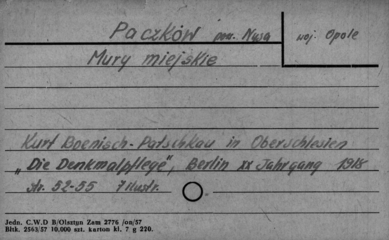 Paczków pow. Nysa woj. Opole
Mury miejskie
Kurt Boenisch-Patschkau in Oberschlesien
„Die Denkmalpflege", Berlin XX Jahrgang 1918
str. 52-55 7 ilustr.
Jedn. C.W.D B/Olsztyn Zam 2776 /on/57
Bltk. 2563/57 10,000 szt. karton kl. 7 g 220.